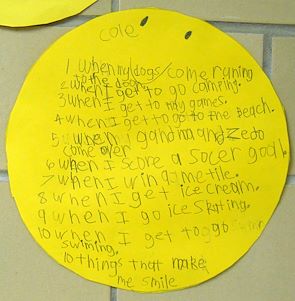 Cole
1 when my dogs come runing
to the door
2 when I get to go camping.
3 when I get to my games.
4 when I get to go to the Beach.
5 when grandma and Zedo
come over
6 when I score a socer goal.
7 when I win game tile.
8 when I get ice cream.
9 when I go ice skating.
10 when I get to go
swiming.
10 things that make
me smile